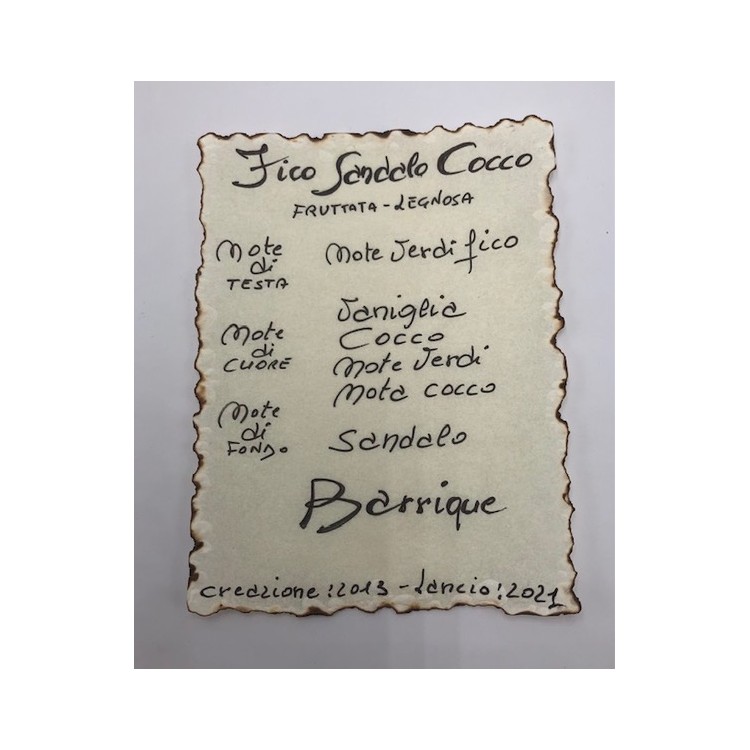 Fico Sandalo Cocco
FRUTTATA - LEGNOSA
Note di TESTA
Note Verdi fico
Note di CUORE
Vaniglia
Cocco
Note Verdi
Nota cocco
Note di FONDO
Sandalo
Barrique
creazione: 2013 - Lancio: 2021